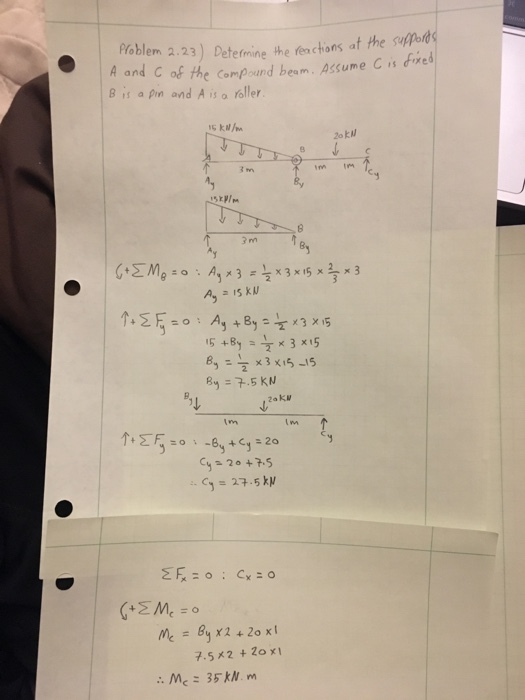 Problem 2.23) Determine the reactions at the supports
A and C of the compound beam. Assume C is fixed
B is a pin and A is a roller.
15 kN/m
20kN
B
C
3m
1m
1m
Ay
By
Cy
15kN/m
B
3m
Ay
By
(+ΣMB = 0 : Ay × 3 = 1/2 × 3 × 15 × 2/3 × 3
Ay = 15 kN
↑+ΣFy = 0 : Ay + By = 1/2 × 3 × 15
15 + By = 1/2 × 3 × 15
By = 1/2 × 3 × 15 - 15
By = 7.5 KN
By
20kN
1m
1m
Cy
↑+ΣFy = 0 : -By + Cy = 20
Cy = 20 + 7.5
∴ Cy = 27.5 kN
ΣFx = 0 : Cx = 0
(+ΣMc = 0
Mc = By × 2 + 20 × 1
7.5 × 2 + 20 × 1
∴ Mc = 35 kN.m